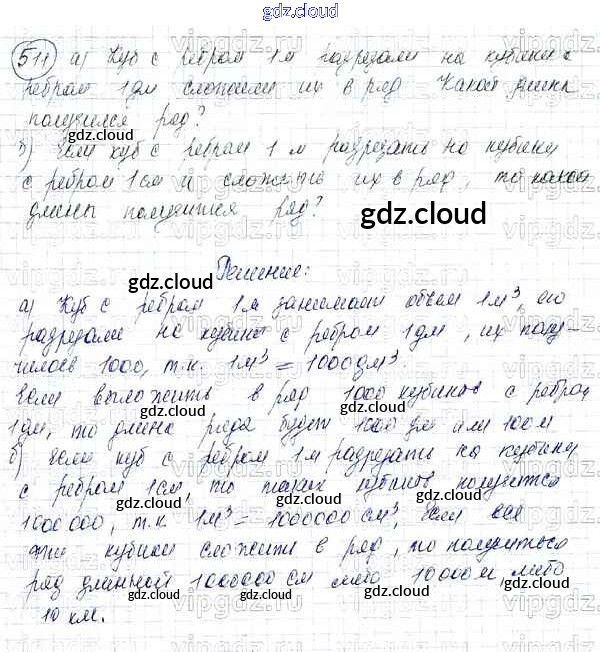 gdz.cloud
511 а) Куб с ребром 1 м разрезали на кубики с
ребром 1 дм сложили их в ряд Какой длины
получился ряд?
gdz.cloud
б) Если куб с ребром 1 м разрезать на кубики
с ребром 1 см и сложить их в ряд, то какой
длины получится ряд?
gdz.cloud
gdz.cloud
Решение:
а) Куб с ребром 1 м занимает объем 1 м³, его
разрезали на кубики с ребром 1 дм, их полу-
чилось 1000, т.к. 1 м³ = 1000 дм³.
Если выложить в ряд 1000 кубиков с ребром
1 дм, то длина ряда будет 1000 дм или 100 м
б) Если куб с ребром 1 м разрезать на кубики
с ребром 1 см, то таких кубиков получится
1000000, т.к. 1 м³ = 1000000 см³, Если все
эти кубики сложить в ряд, то получиться
ряд длинной 1000000 см либо 10000 м, либо
10 км.